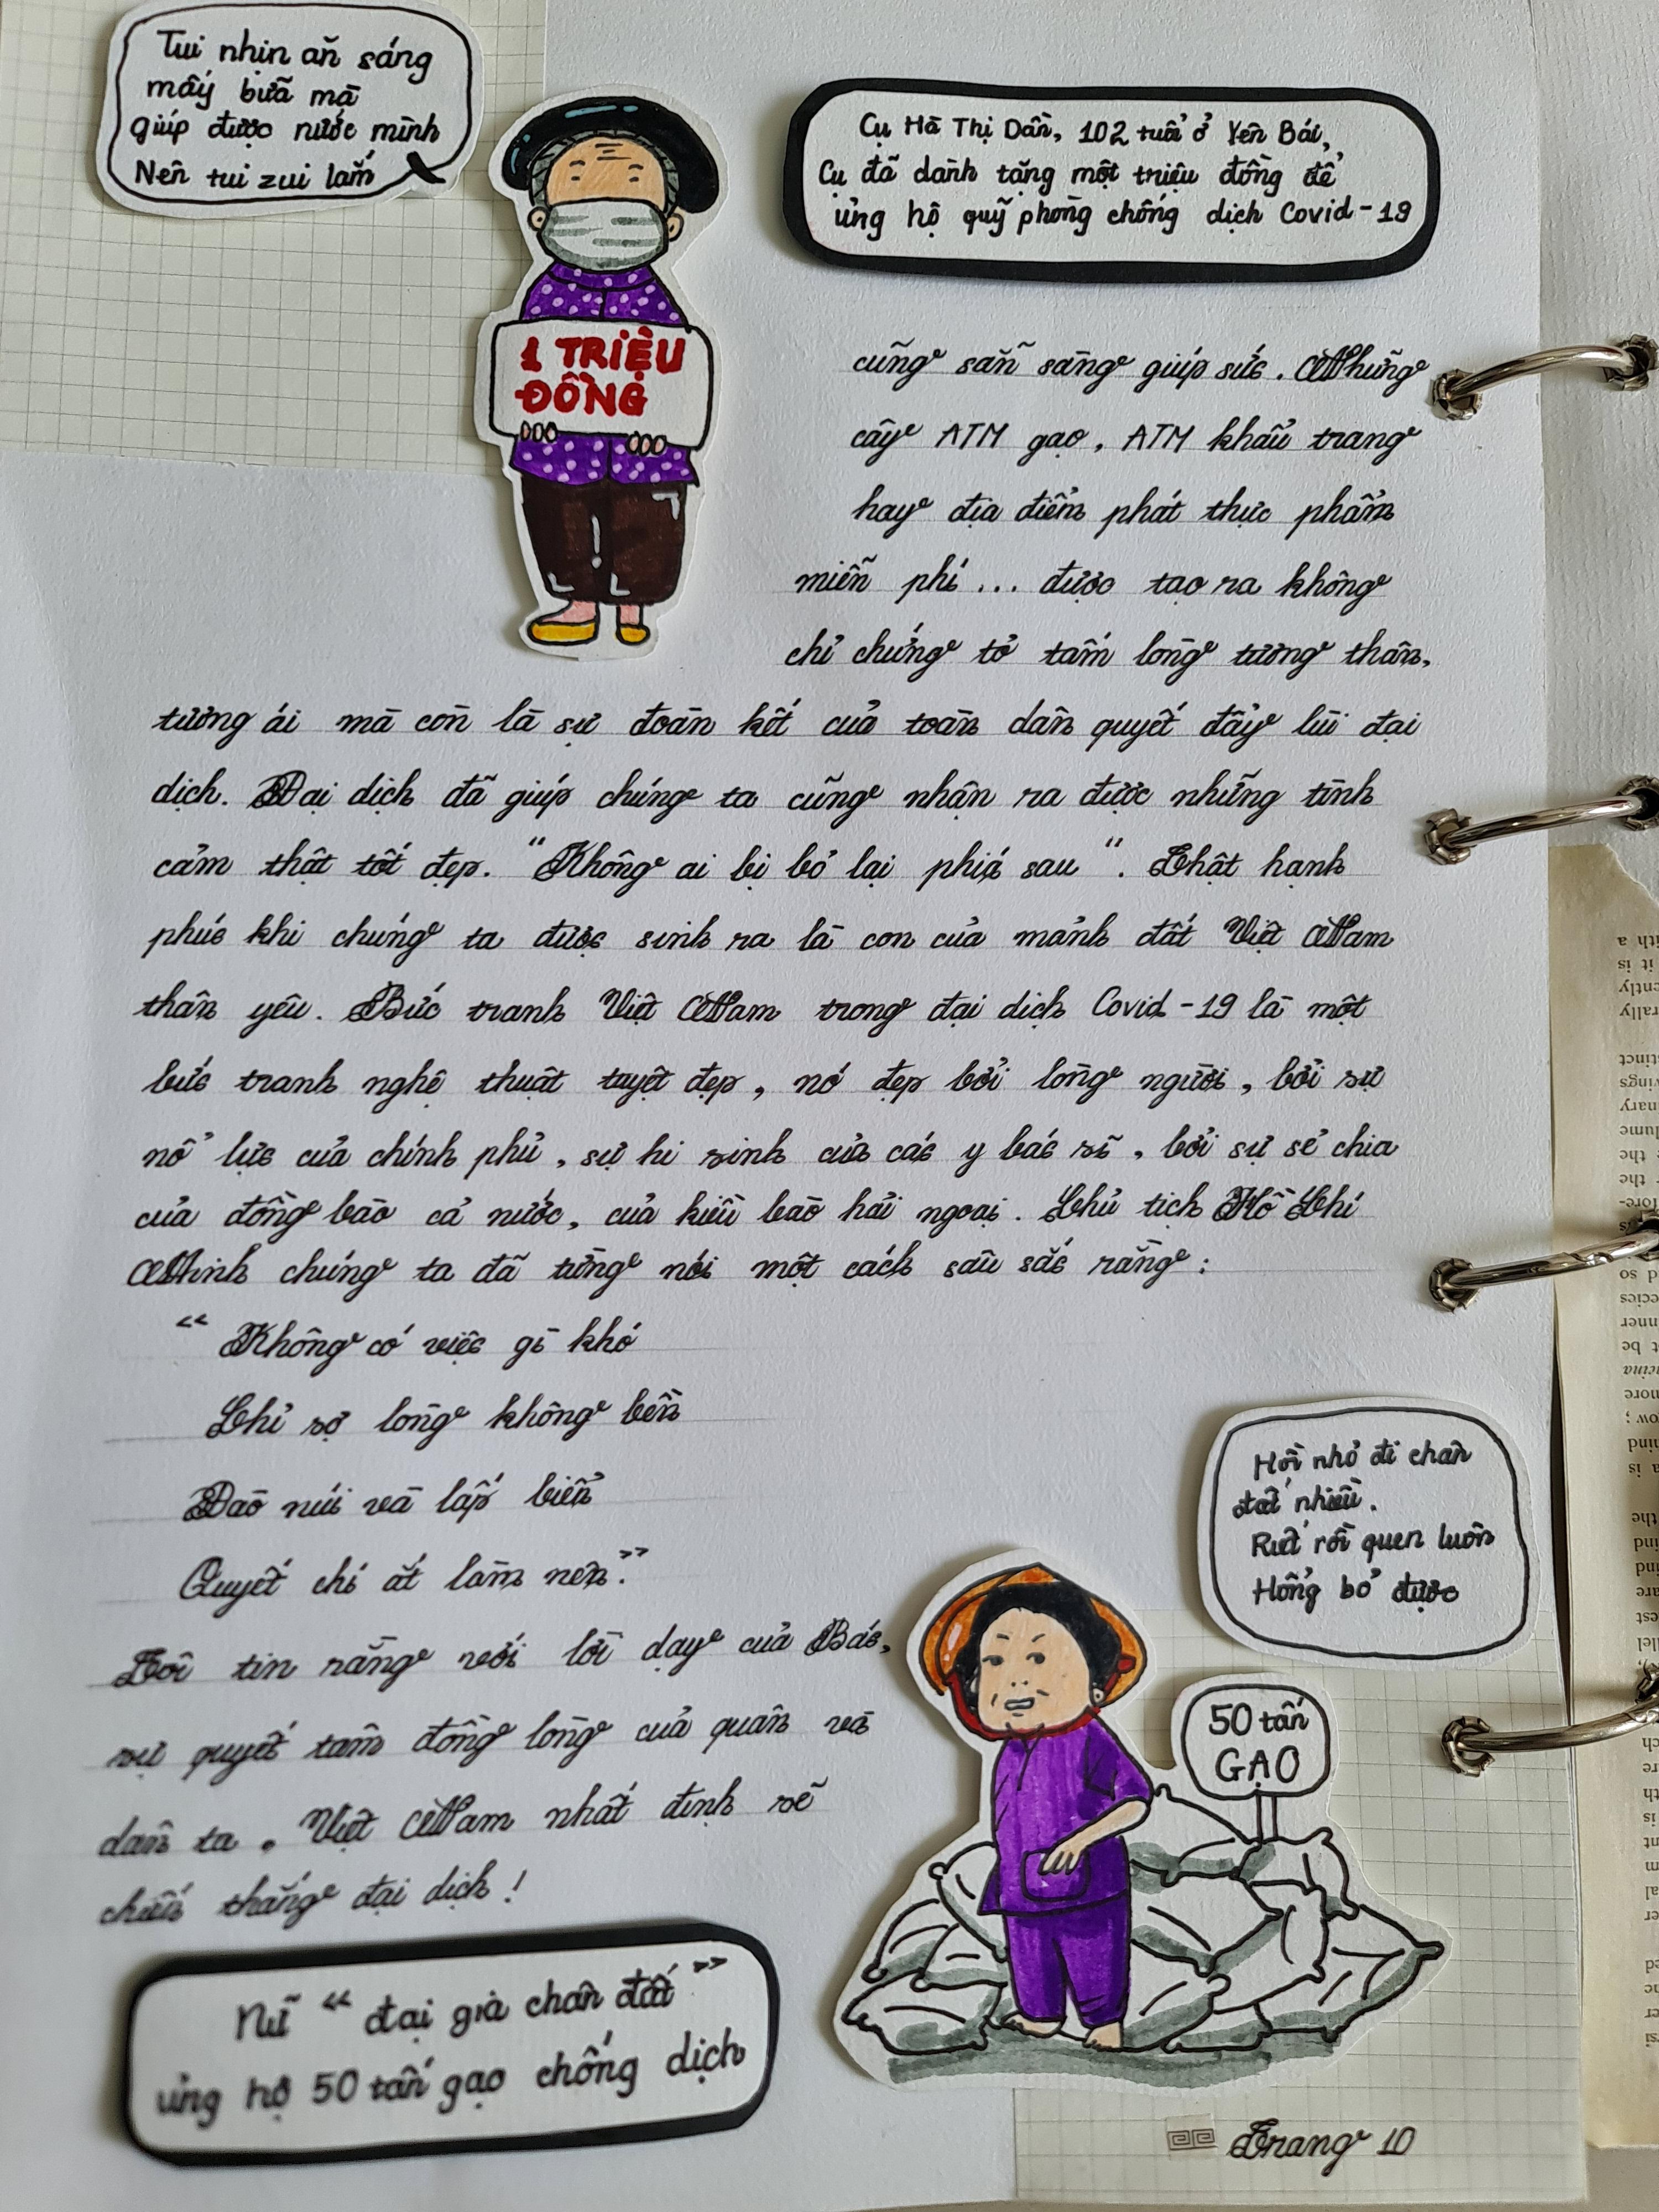 Tui nhịn ăn sáng
mấy bữa mà
giúp được nước mình
Nên tui zui lắm
Cụ Hà Thị Dần, 102 tuổi ở Yên Bái,
Cụ đã dành tặng một triệu đồng để
ủng hộ quỹ phòng chống dịch Covid-19
1 TRIỆU
ĐỒNG
cũng sẵn sàng giúp sức. Những
cây ATM gạo, ATM khẩu trang
hay địa điểm phát thực phẩm
miễn phí... được tạo ra không
chỉ chứng tỏ tấm lòng tương thân,
tương ái mà còn là sự đoàn kết của toàn dân quyết đẩy lùi đại
dịch. Đại dịch đã giúp chúng ta cũng nhận ra được những tình
cảm thật tốt đẹp. "Không ai bị bỏ lại phía sau". Thật hạnh
phúc khi chúng ta được sinh ra là con của mảnh đất Việt Nam
thân yêu. Bức tranh Việt Nam trong đại dịch Covid-19 là một
bức tranh nghệ thuật tuyệt đẹp, nó đẹp bởi lòng người, bởi sự
nổ lực của chính phủ, sự hi sinh của các y bác sĩ, bởi sự sẻ chia
của đồng bào cả nước, của kiều bào hải ngoại. Chủ tịch Hồ Chí
Minh chúng ta đã từng nói một cách sâu sắc rằng:
"Không có việc gì khó
Chỉ sợ lòng không bền
Đào núi và lấp biển
Quyết chí ắt làm nên."
Tôi tin rằng với lời dạy của Bác,
sự quyết tâm đồng lòng của quân và
dân ta. Việt Nam nhất định sẽ
chiến thắng đại dịch!
Hồi nhỏ đi chân
đất nhiều.
Riết rồi quen luôn
Hổng bỏ được
50 tấn
GẠO
Nữ "đại gia chân đất"
ủng hộ 50 tấn gạo chống dịch
Trang 10